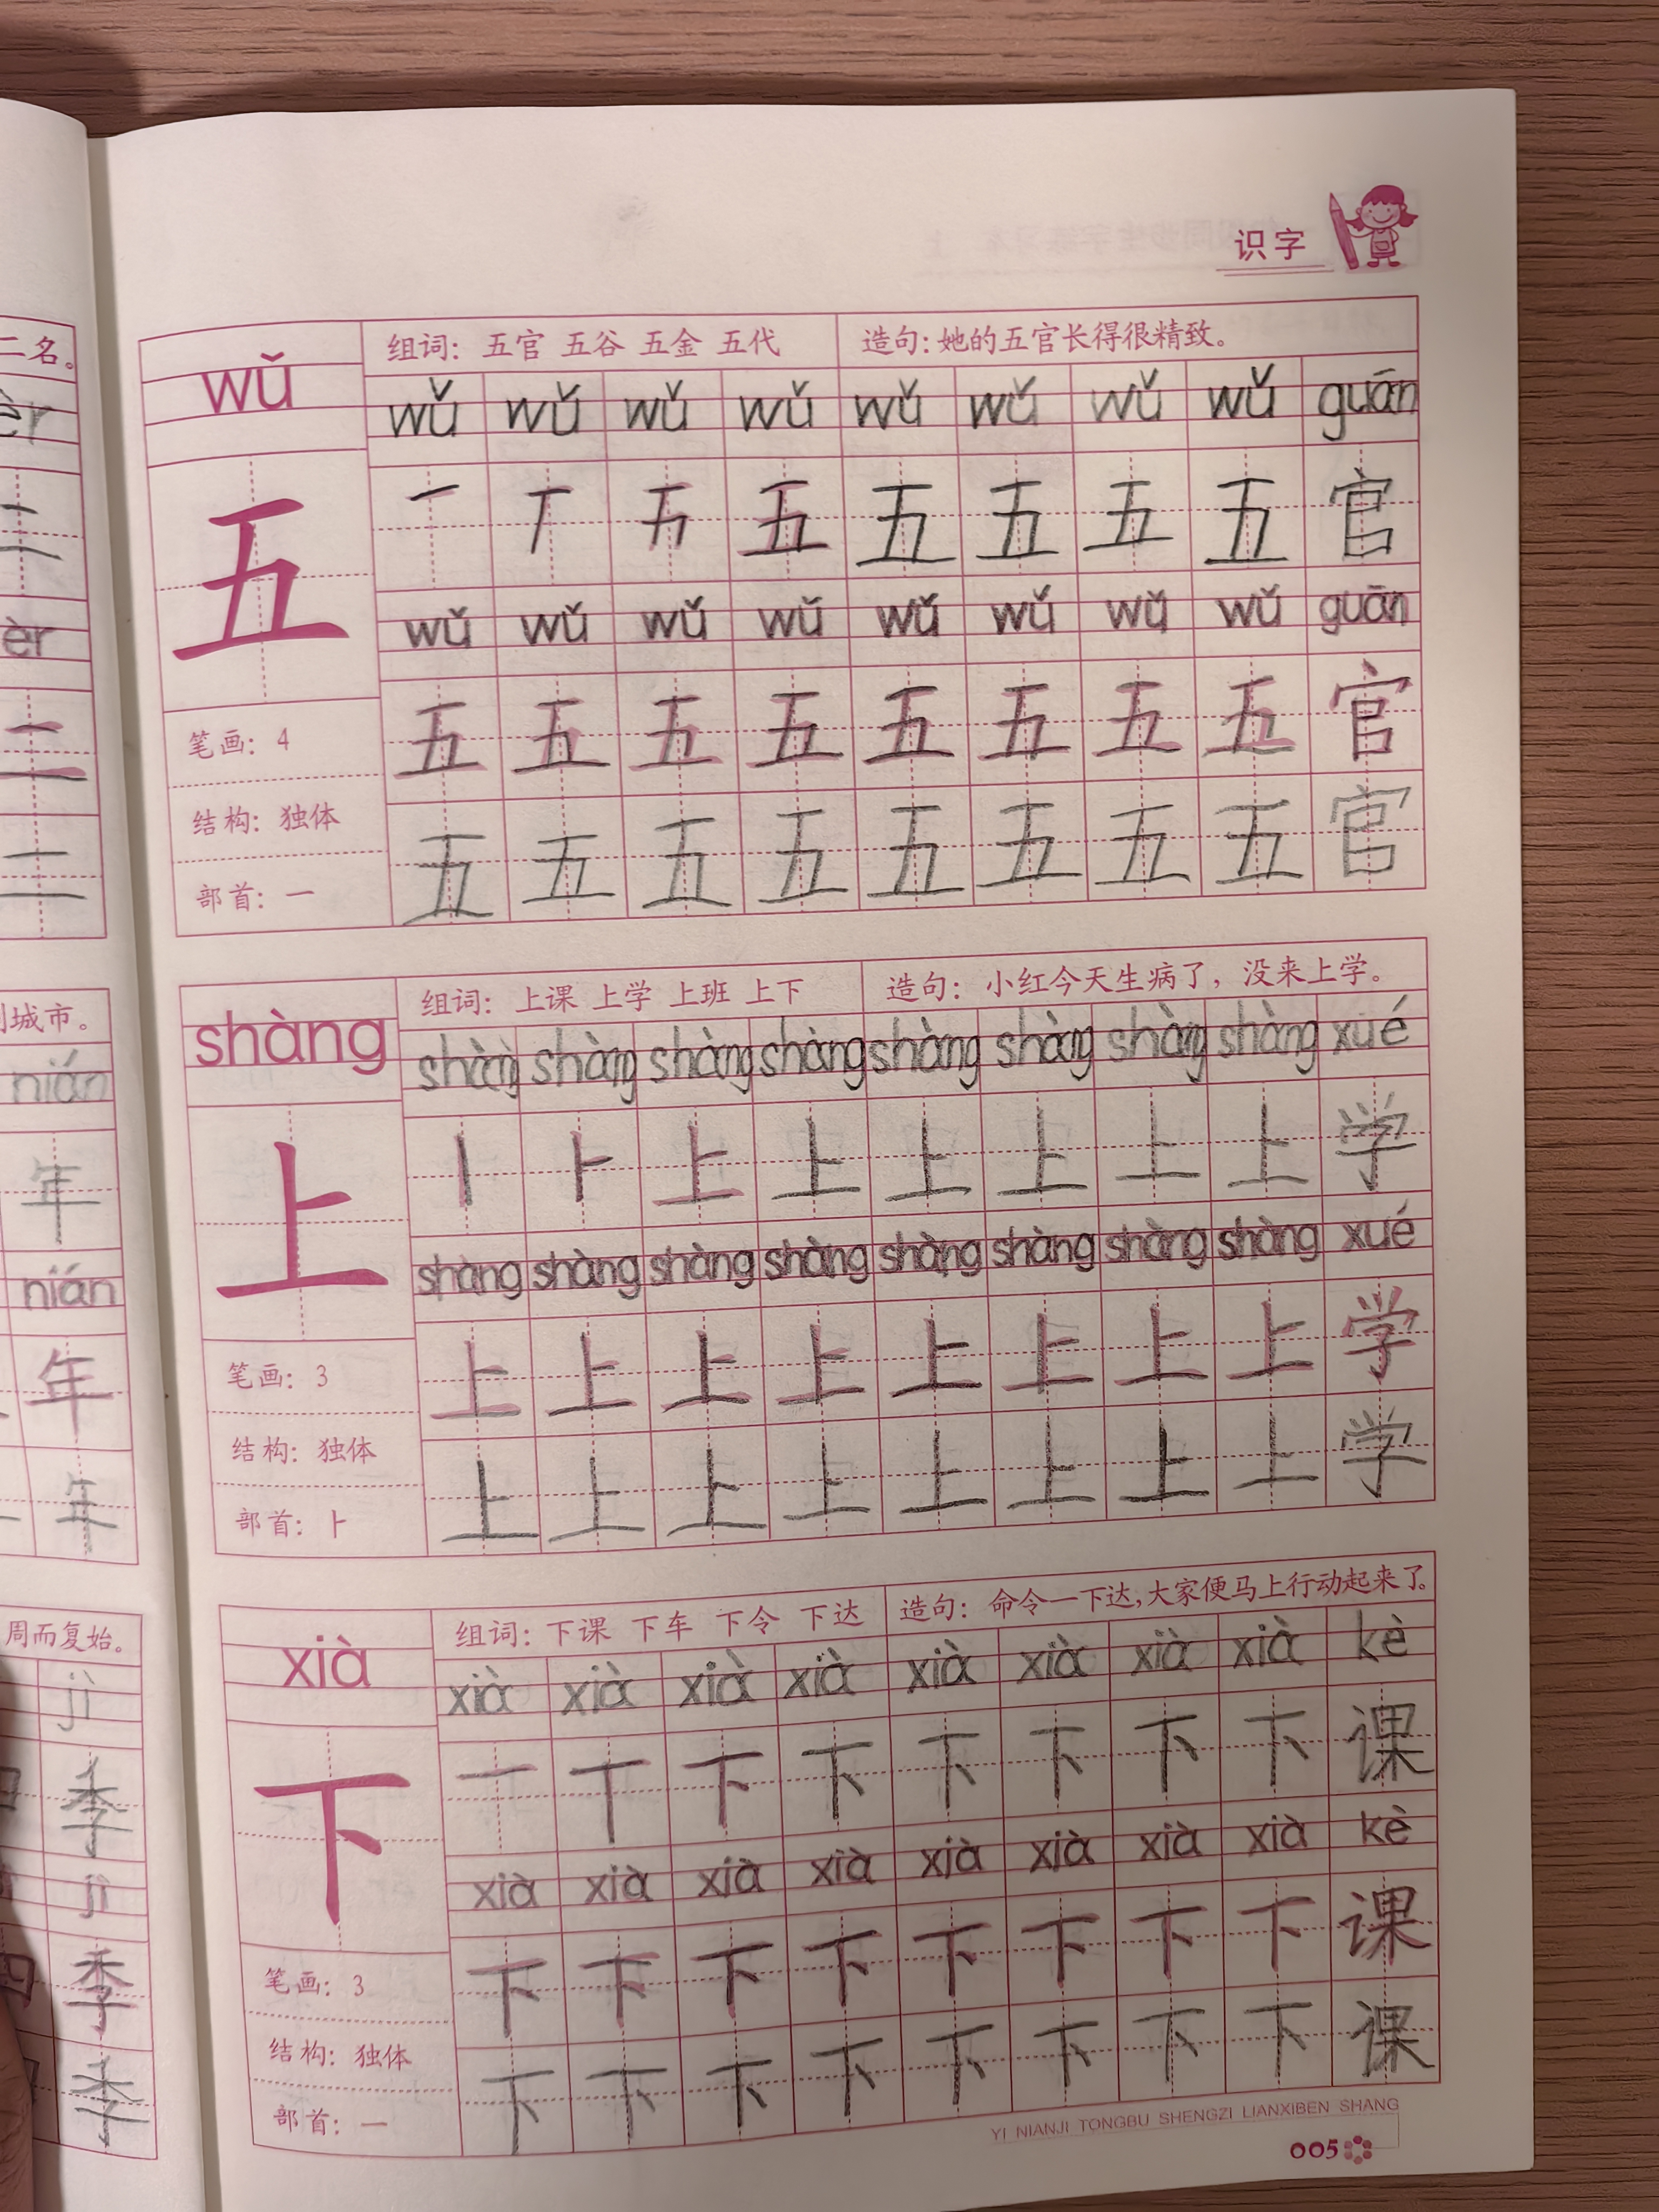 二名。
èr
二
èr
二
二
城市。
nián
年
nián
年
年
周而复始。
jì
季
jì
季
季
识字
wǔ
组词：五官 五谷 五金 五代
造句：她的五官长得很精致。
wǔ wǔ wǔ wǔ wǔ wǔ wǔ wǔ guān
五
一 五 五 五 五 五 官
wǔ wǔ wǔ wǔ wǔ wǔ wǔ wǔ guān
五 五 五 五 五 五 五 五 官
五 五 五 五 五 五 五 五 官
笔画：4
结构：独体
部首：一
shàng
组词：上课 上学 上班 上下
造句：小红今天生病了，没来上学。
shàng shàng shàng shàng shàng shàng shàng shàng xué
上
丨 卜 上 上 上 上 上 上 学
shàng shàng shàng shàng shàng shàng shàng shàng xué
上 上 上 上 上 上 上 上 学
上 上 上 上 上 上 上 上 学
笔画：3
结构：独体
部首：⺊
xià
组词：下课 下车 下令 下达
造句：命令一下达，大家便马上行动起来了。
xià xià xià xià xià xià xià xià kè
下
一 丅 下 下 下 下 下 下 课
xià xià xià xià xià xià xià xià kè
下 下 下 下 下 下 下 下 课
下 下 下 下 下 下 下 下 课
笔画：3
结构：独体
部首：一
YI NIANJI TONGBU SHENGZI LIANXIBEN SHANG
005